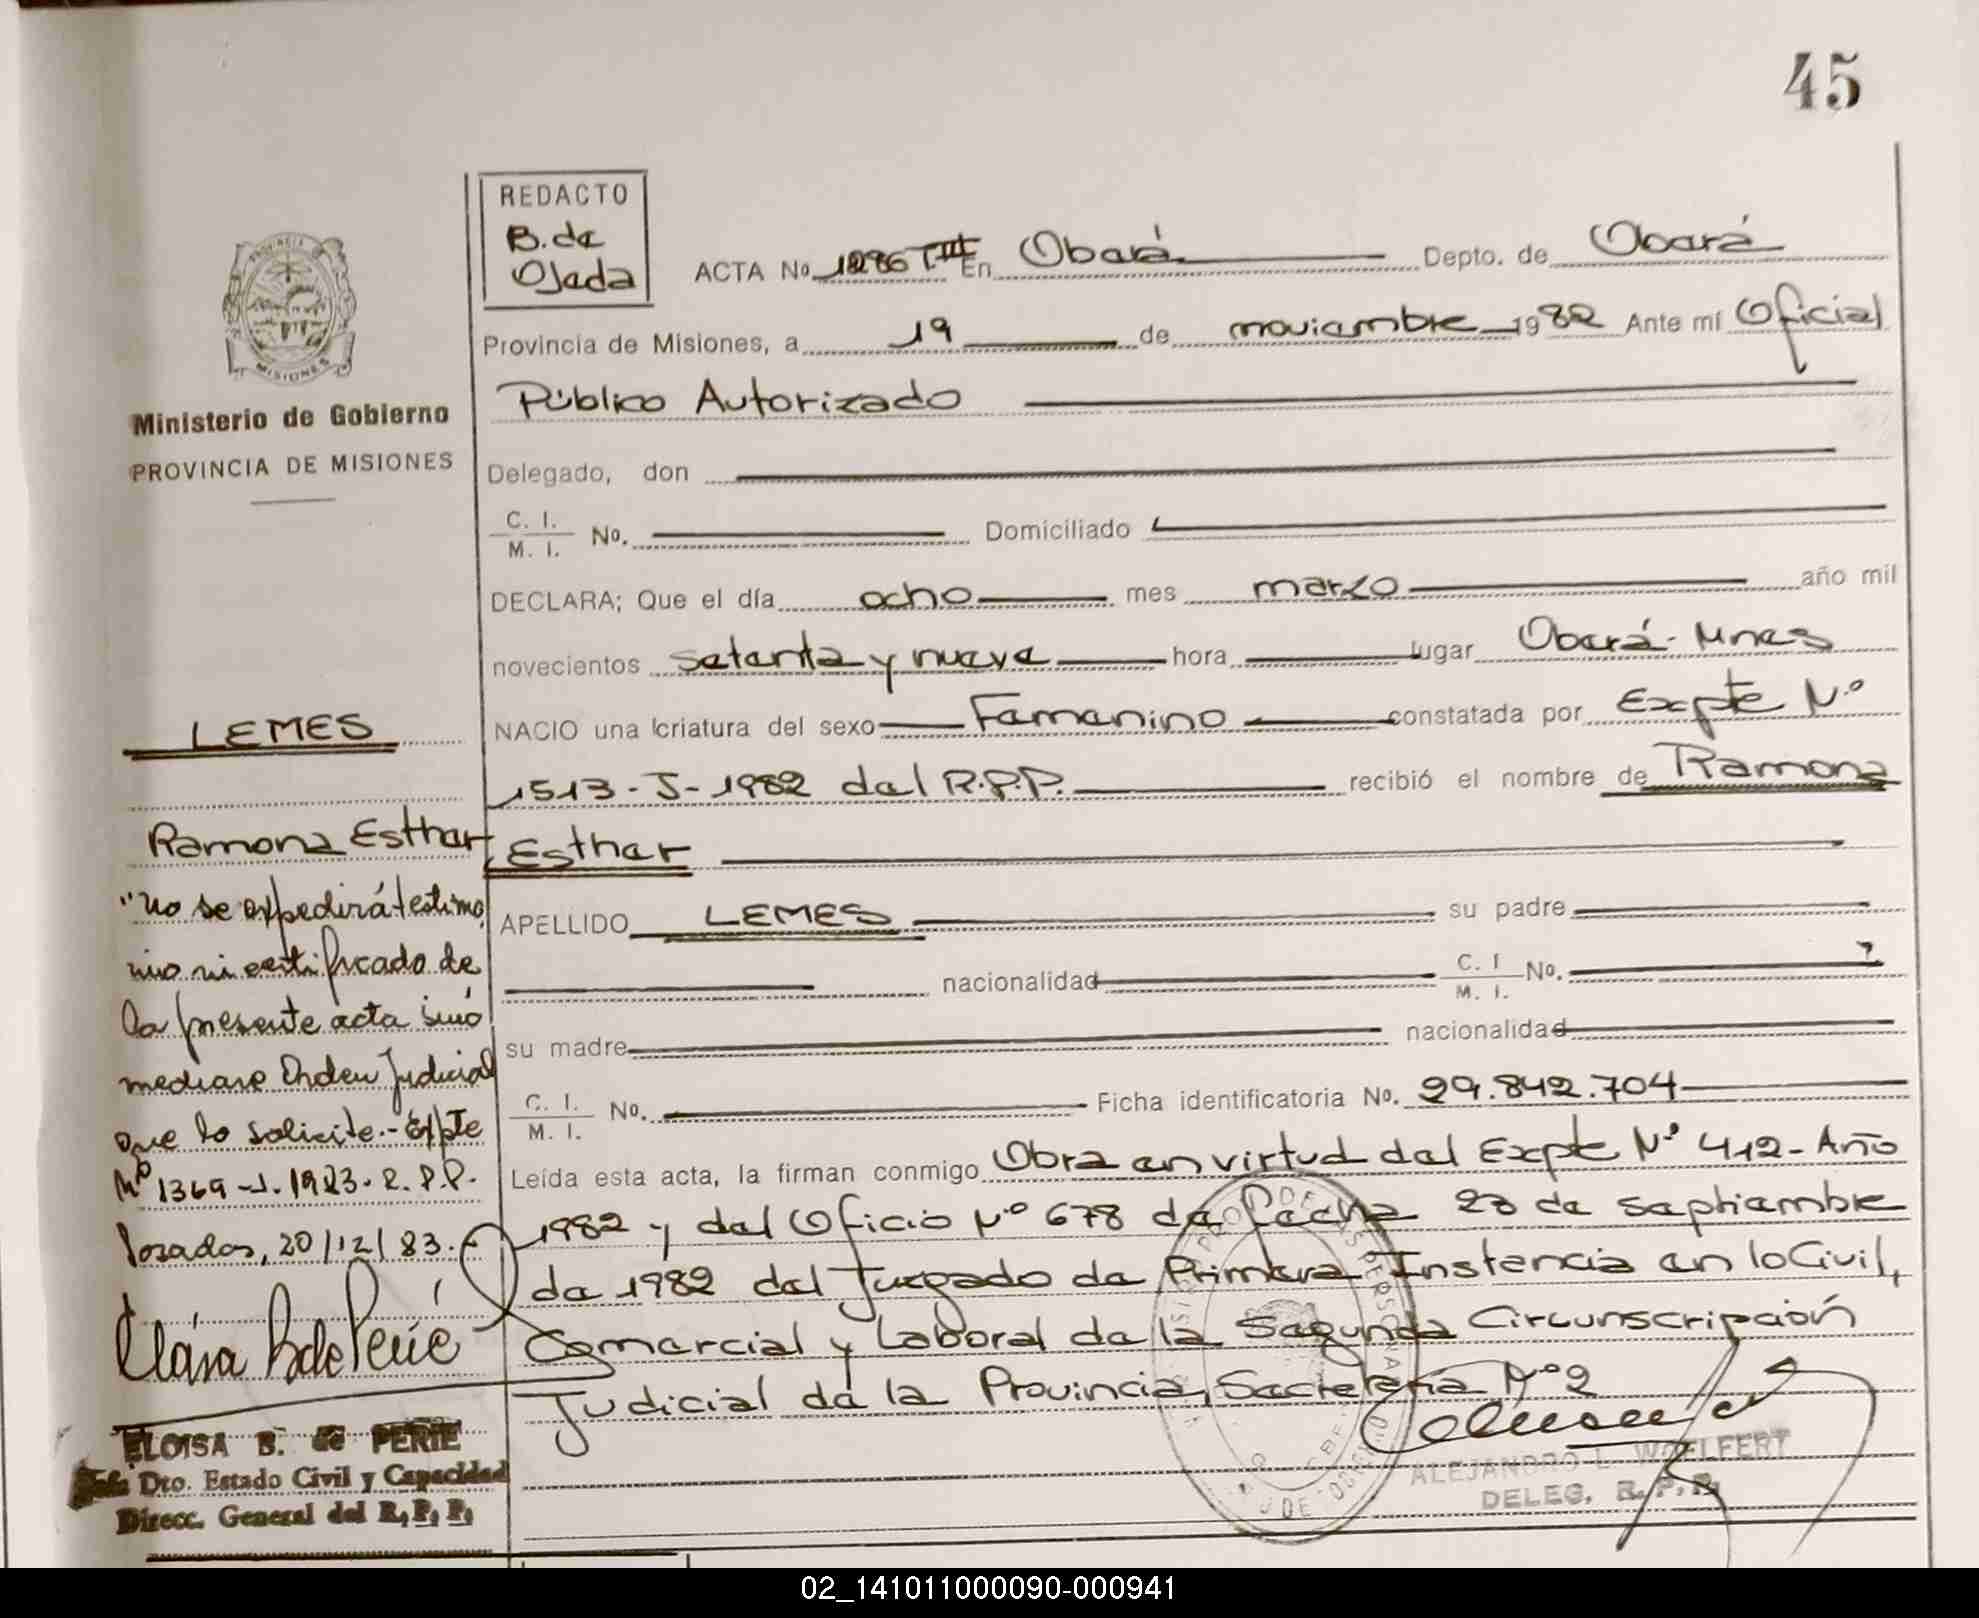 45
REDACTO
B. de
Ojeda
ACTA No. 1286 T.III En Oberá Depto. de Oberá
Provincia de Misiones, a 19 de noviembre 1982 Ante mí Oficial
Público Autorizado
Delegado, don
C. I. / M. I. No. Domiciliado
DECLARA; Que el día ocho mes marzo año mil
novecientos setenta y nueve hora lugar Oberá - Mnes
NACIO una criatura del sexo Femenino constatada por Expte Nº
1513-J-1982 del R.P.P. recibió el nombre de Ramona
Esther
APELLIDO LEMES su padre
nacionalidad C. I / M. I. No.
su madre nacionalidad
C. I. / M. I. No. Ficha identificatoria No. 29.842.704
Leída esta acta, la firman conmigo Obra en virtud del Expte Nº 412 - Año
1982 y del Oficio Nº 678 de fecha 28 de septiembre
de 1982 del Juzgado de Primera Instancia en lo Civil,
Comercial y Laboral de la Segunda Circunscripción
Judicial de la Provincia, Secretaría Nº 2
ALEJANDRO L. WOELFERT
DELEG. R.P.P.
PROVINCIA
MISIONES
Ministerio de Gobierno
PROVINCIA DE MISIONES
LEMES
Ramona Esther
"No se expedirá testimo
nio ni certificado de
la presente acta sinó
mediare Orden Judicial
que lo solicite.- Expte
Nº 1369-J-1983-R.P.P.
Posadas, 20/12/83.-
ELOISA B. de PERIE
Jefa Dto. Estado Civil y Capacidad
Direcc. General del R. P. P.
02_141011000090-000941